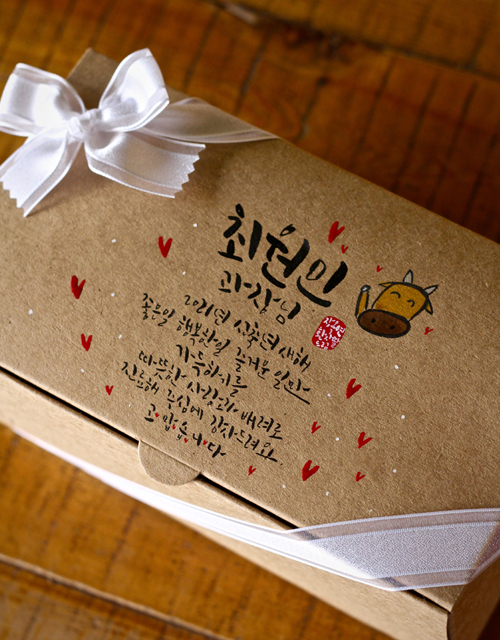 최원민
과장님
2021년 신축년 새해
좋은일 행복한일 즐거운 일만
가득하기를
따뜻한 사랑과 배려로
진료해 주심에 감사드려요.
고맙습니다